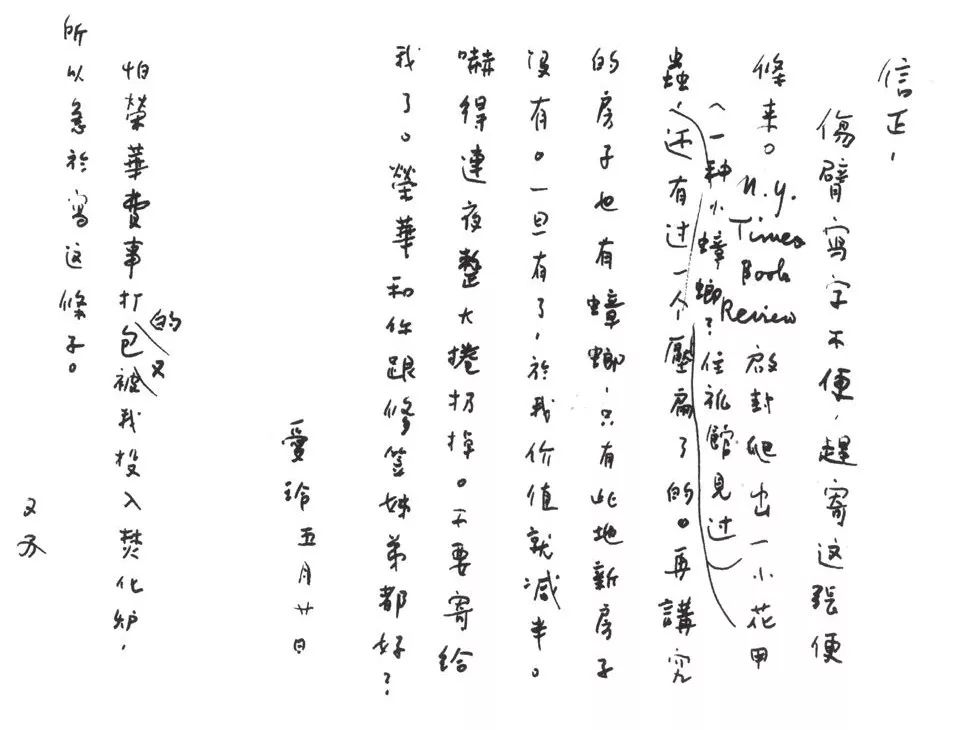 信正，
傷臂寫字不便，趕寄这張便
條来。N.Y. Times Book Review 啟封爬出一小花甲
（一种小蟑螂？住旅館見过）
蟲，还有过一个壓扁了的。再講究
的房子也有蟑螂，只有此地新房子
没有。一旦有了，於我价值就減半。
嚇得連夜整大捲扔掉。不要寄給
我了。榮華和你跟修笠姊弟都好？
愛玲五月廿日
怕榮華費事打包的又被我投入焚化炉，
所以急於寫这條子。
又及